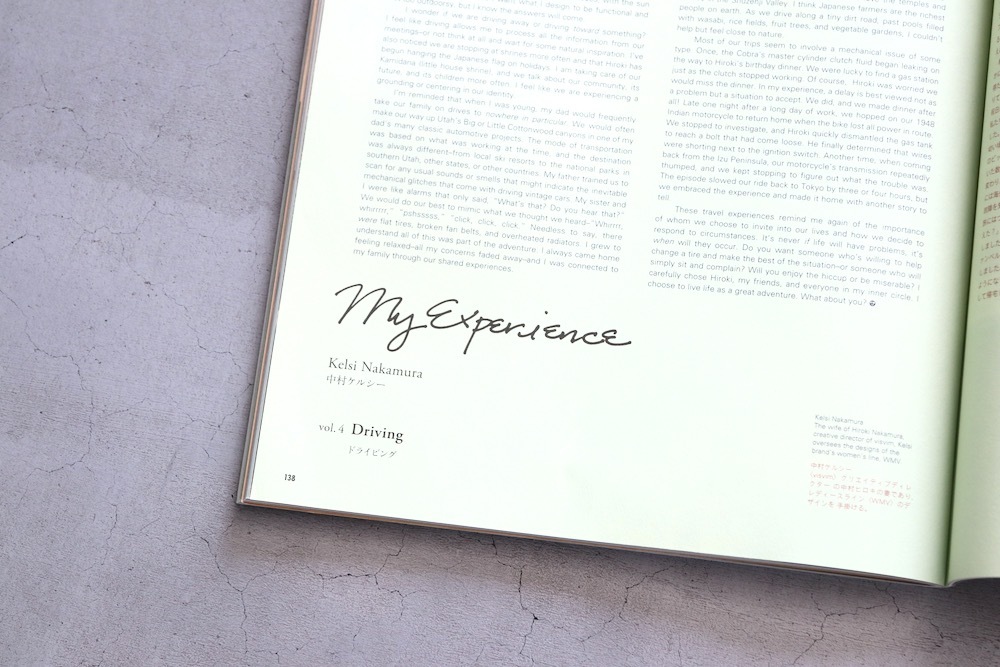 to be outdoorsy, but I know the answers will come.
I wonder if we are driving away or driving toward something?
I feel like driving allows me to process all the information from our
meetings–or not think at all and wait for some natural inspiration. I've
also noticed we are stopping at shrines more often and that Hiroki has
begun hanging the Japanese flag on holidays. I am taking care of our
Kamidana little house shrine, and we talk about our community, its
future, and its children more often. I feel like we are experiencing a
grounding or centering in our identity.
I'm reminded that when I was young, my dad would frequently
take our family on drives to nowhere in particular. We would often
make our way up Utah's Big or Little Cottonwood canyons in one of my
dad's many classic automotive projects. The mode of transportation
was based on what was working at the time, and the destination
was always different–from local ski resorts to the national parks in
southern Utah, other states, or other countries. My father trained us to
scan for any usual sounds or smells that might indicate the inevitable
mechanical glitches that come with driving vintage cars. My sister and
I were like alarms that only said, "What's that? Do you hear that?"
We would do our best to mimic what we thought we heard–"Whrrrr,
whrrrr," "pshsssss," "click, click, click." Needless to say, there
were flat tires, broken fan belts, and overheated radiators. I grew to
understand all of this was part of the adventure. I always came home
feeling relaxed–all my concerns faded away–and I was connected to
my family through our shared experiences.
people on earth. As we drive along a tiny dirt road, past pools filled
with wasabi, rice fields, fruit trees, and vegetable gardens, I couldn't
help but feel close to nature.
Most of our trips seem to involve a mechanical issue of some
type. Once, the Cobra's master cylinder clutch fluid began leaking on
the way to Hiroki's birthday dinner. We were lucky to find a gas station
just as the clutch stopped working. Of course, Hiroki was worried we
would miss the dinner. In my experience, a delay is best viewed not as
a problem but a situation to accept. We did, and we made dinner after
all! Late one night after a long day of work, we hopped on our 1948
Indian motorcycle to return home when the bike lost all power in route.
We stopped to investigate, and Hiroki quickly dismantled the gas tank
to reach a bolt that had come loose. He finally determined that wires
were shorting next to the ignition switch. Another time, when coming
back from the Izu Peninsula, our motorcycle's transmission repeatedly
thumped, and we kept stopping to figure out what the trouble was.
The episode slowed our ride back to Tokyo by three or four hours, but
we embraced the experience and made it home with another story to
tell.
These travel experiences remind me again of the importance
of whom we choose to invite into our lives and how we decide to
respond to circumstances. It's never if life will have problems, it's
when will they occur. Do you want someone who's willing to help
change a tire and make the best of the situation–or someone who will
simply sit and complain? Will you enjoy the hiccup or be miserable? I
carefully chose Hiroki, my friends, and everyone in my inner circle. I
choose to live life as a great adventure. What about you?
My Experience
Kelsi Nakamura
中村ケルシー
vol. 4 Driving
ドライビング
138
Kelsi Nakamura
The wife of Hiroki Nakamura,
creative director of visvim. Kelsi
oversees the designs of the
brand's women's line, WMV.
中村ケルシー
〈visvim〉クリエイティブディレ
クターの中村ヒロキの妻であり、
レディースライン〈WMV〉のデ
ザインを手掛ける。